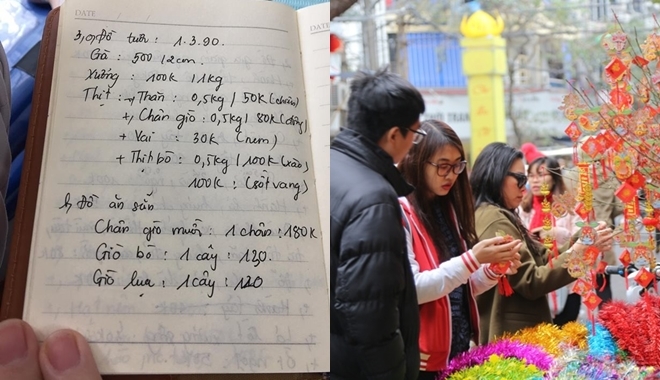 DATE
DATE
3, a, Đồ tươi : 1.3.90.
Gà : 500 / 2 con.
Xương : 100K / 1kg
Thịt : + Thăn : 0,5kg / 50K (chiên)
+, Chân giò : 0,5kg / 80K (đông)
+ Vai : 30K (nem)
+ Thịt bò : 0,5kg / 100K (xào)
100K : (sốt vang)
b, Đồ ăn sẵn
Chân giò muối : 1 chân : 180K
Giò bò : 1 cây : 120.
Giò lụa : 1 cây : 120